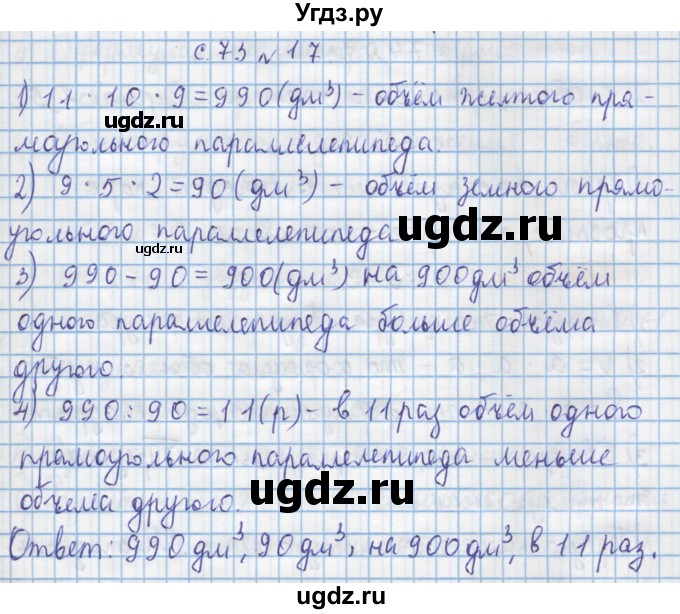 Угдз.ру
с 73 № 17.
1) 11 · 10 · 9 = 990 (дм³) – объём желтого пря-
моугольного параллелепипеда.
2) 9 · 5 · 2 = 90 (дм³) – объём земного прямо-
угольного параллелепипеда
3) 990 – 90 = 900 (дм³) на 900 дм³ объём
одного параллелепипеда больше объёма
другого.
4) 990 : 90 = 11 (р) – в 11 раз объём одного
прямоугольного параллелепипеда меньше
объема другого.
Ответ: 990 дм³, 90 дм³, на 900 дм³, в 11 раз.
ugdz.ru
ugdz.ru
ugdz.ru
ugdz.ru
ugdz.ru
ugdz.ru
ugdz.ru